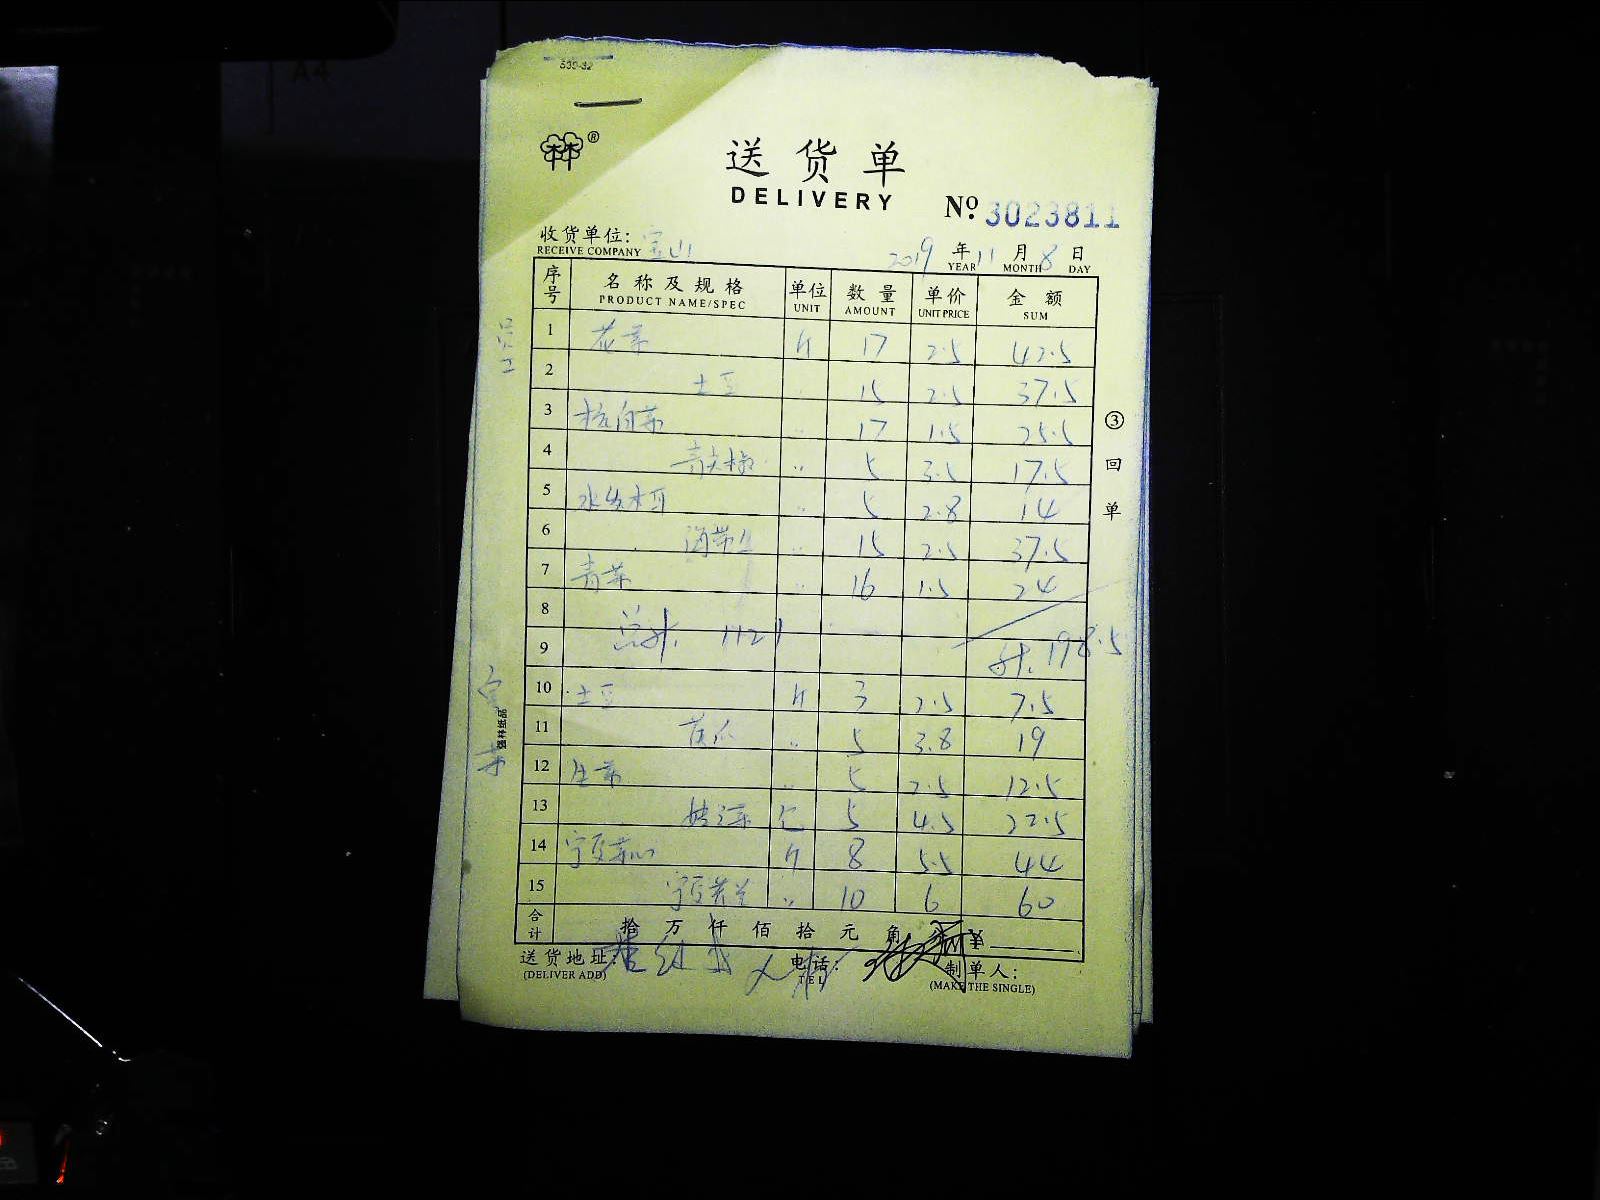 A4
®
送货单
DELIVERY
Nº 3023811
收货单位: 宝山
RECEIVE COMPANY
2019 年 11 月 8 日
YEAR MONTH DAY
序号 名称及规格 单位 数量 单价 金额
PRODUCT NAME/SPEC UNIT AMOUNT UNIT PRICE SUM
员工
1 花菜 斤 17 2.5 42.5
2 土豆 15 2.5 37.5
3 杭白菜 〃 17 1.5 25.5
4 青大椒 〃 5 3.5 17.5
5 水发木耳 〃 5 2.8 14
6 海带丝 〃 15 2.5 37.5
7 青菜 〃 16 1.5 24
8
9 计. 198.5
10 土豆 斤 3 2.5 7.5
11 黄瓜 〃 5 3.8 19
12 生菜 〃 5 2.5 12.5
13 5 4.5 22.5
14 宁夏菜心 斤 8 5.5 44
15 〃 10 6 60
合计 拾 万 仟 佰 拾 元 角 ¥
送货地址: 电话: 制单人:
(DELIVER ADD) TEL (MAKE THE SINGLE)
③回单
强林纸品